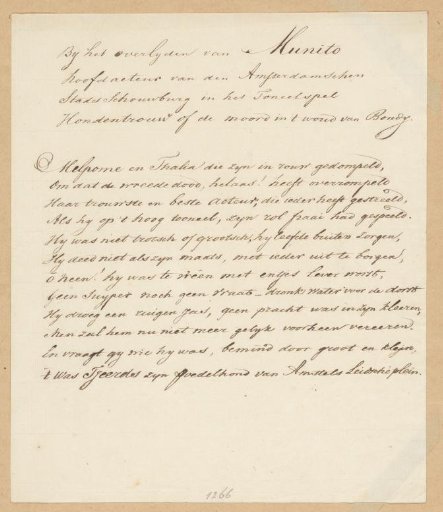 By het overlyden van Munito
hoofdacteur van den Amsterdamschen
Stads Schouwburg in het Toneelspel
Hondentrouw of de moord in 't woud van Bondy.
Melpome en Thalia die zyn in rouw gedompeld,
Om dat de wreede dood, helaas! heeft overrompeld
Haar trouwste en beste Acteur, die ieder heeft gestreeld,
Als hy op 't hoog toneel, zyn rol fraai had gespeeld.
Hy was niet trotsch of grootsch, hy leefde buiten zorgen,
Hy deed niet als zyn maats, met ieder uit te borgen,
o neen! hy was te vreen met enkel lever worst,
Geen Zuyper noch geen Vraat - dronk water voor de dorst
Hy droeg een ruigen jas, geen pracht was in zyn kleeren,
Men zal hem nu niet meer gelyk voorheen vereeren.
En vraagt gy wie hy was, bemind door groot en klein,
't was Tjeerds zyn Poedelhond van Amstels Leidscheplein.
1266